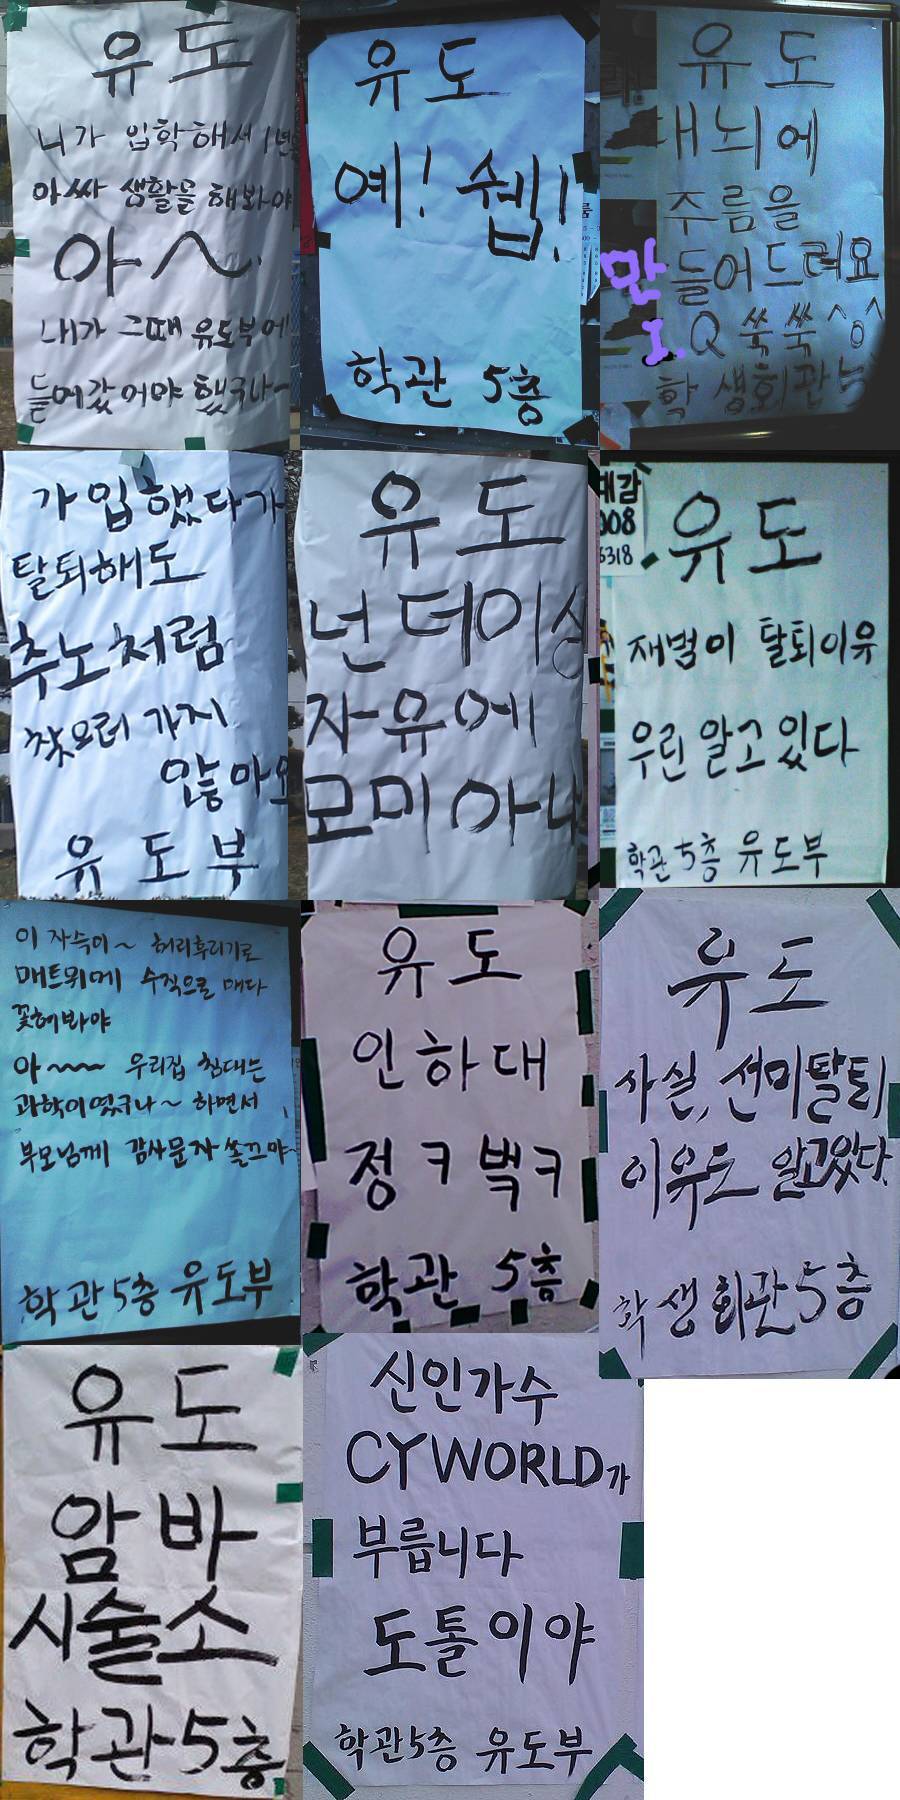 유도
니가 입학해서 1년을
아싸 생활을 해봐야
아~
내가 그때 유도부에
들어갔어야 했구나~
유도
예! 쉡!
학관 5층
유도
대뇌에
주름을
만들어드려요
I.Q 쑥쑥^o^
학생회관 5층
가입했다가
탈퇴해도
추노처럼
찾으러 가지
않아요
유도부
유도
넌 더이상
자유에
모미 아냐
예감
008
6318
유도
재범이 탈퇴이유
우린 알고있다
학관 5층 유도부
이 자슥이~ 허리후리기로
매트위에 수직으로 매다
꽂혀봐야
아~~~ 우리집 침대는
과학이었구나~ 하면서
부모님께 감사문자 쏠끄야~
학관5층 유도부
유도
인하대
정ㅋ벅ㅋ
학관 5층
유도
사실, 선미탈퇴
이유도 알고있다.
학생회관5층
유도
암바
시술소
학관5층
신인가수
CYWORLD가
부릅니다
도톨이야
학관5층 유도부